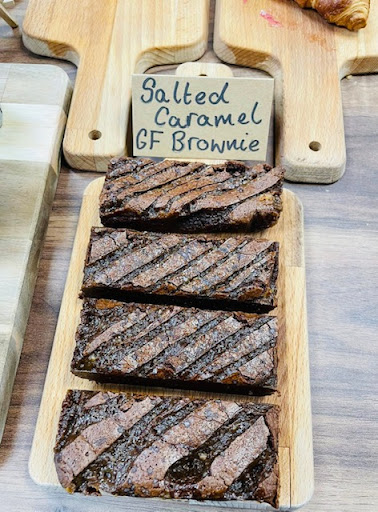 Salted
Caramel
GF Brownie